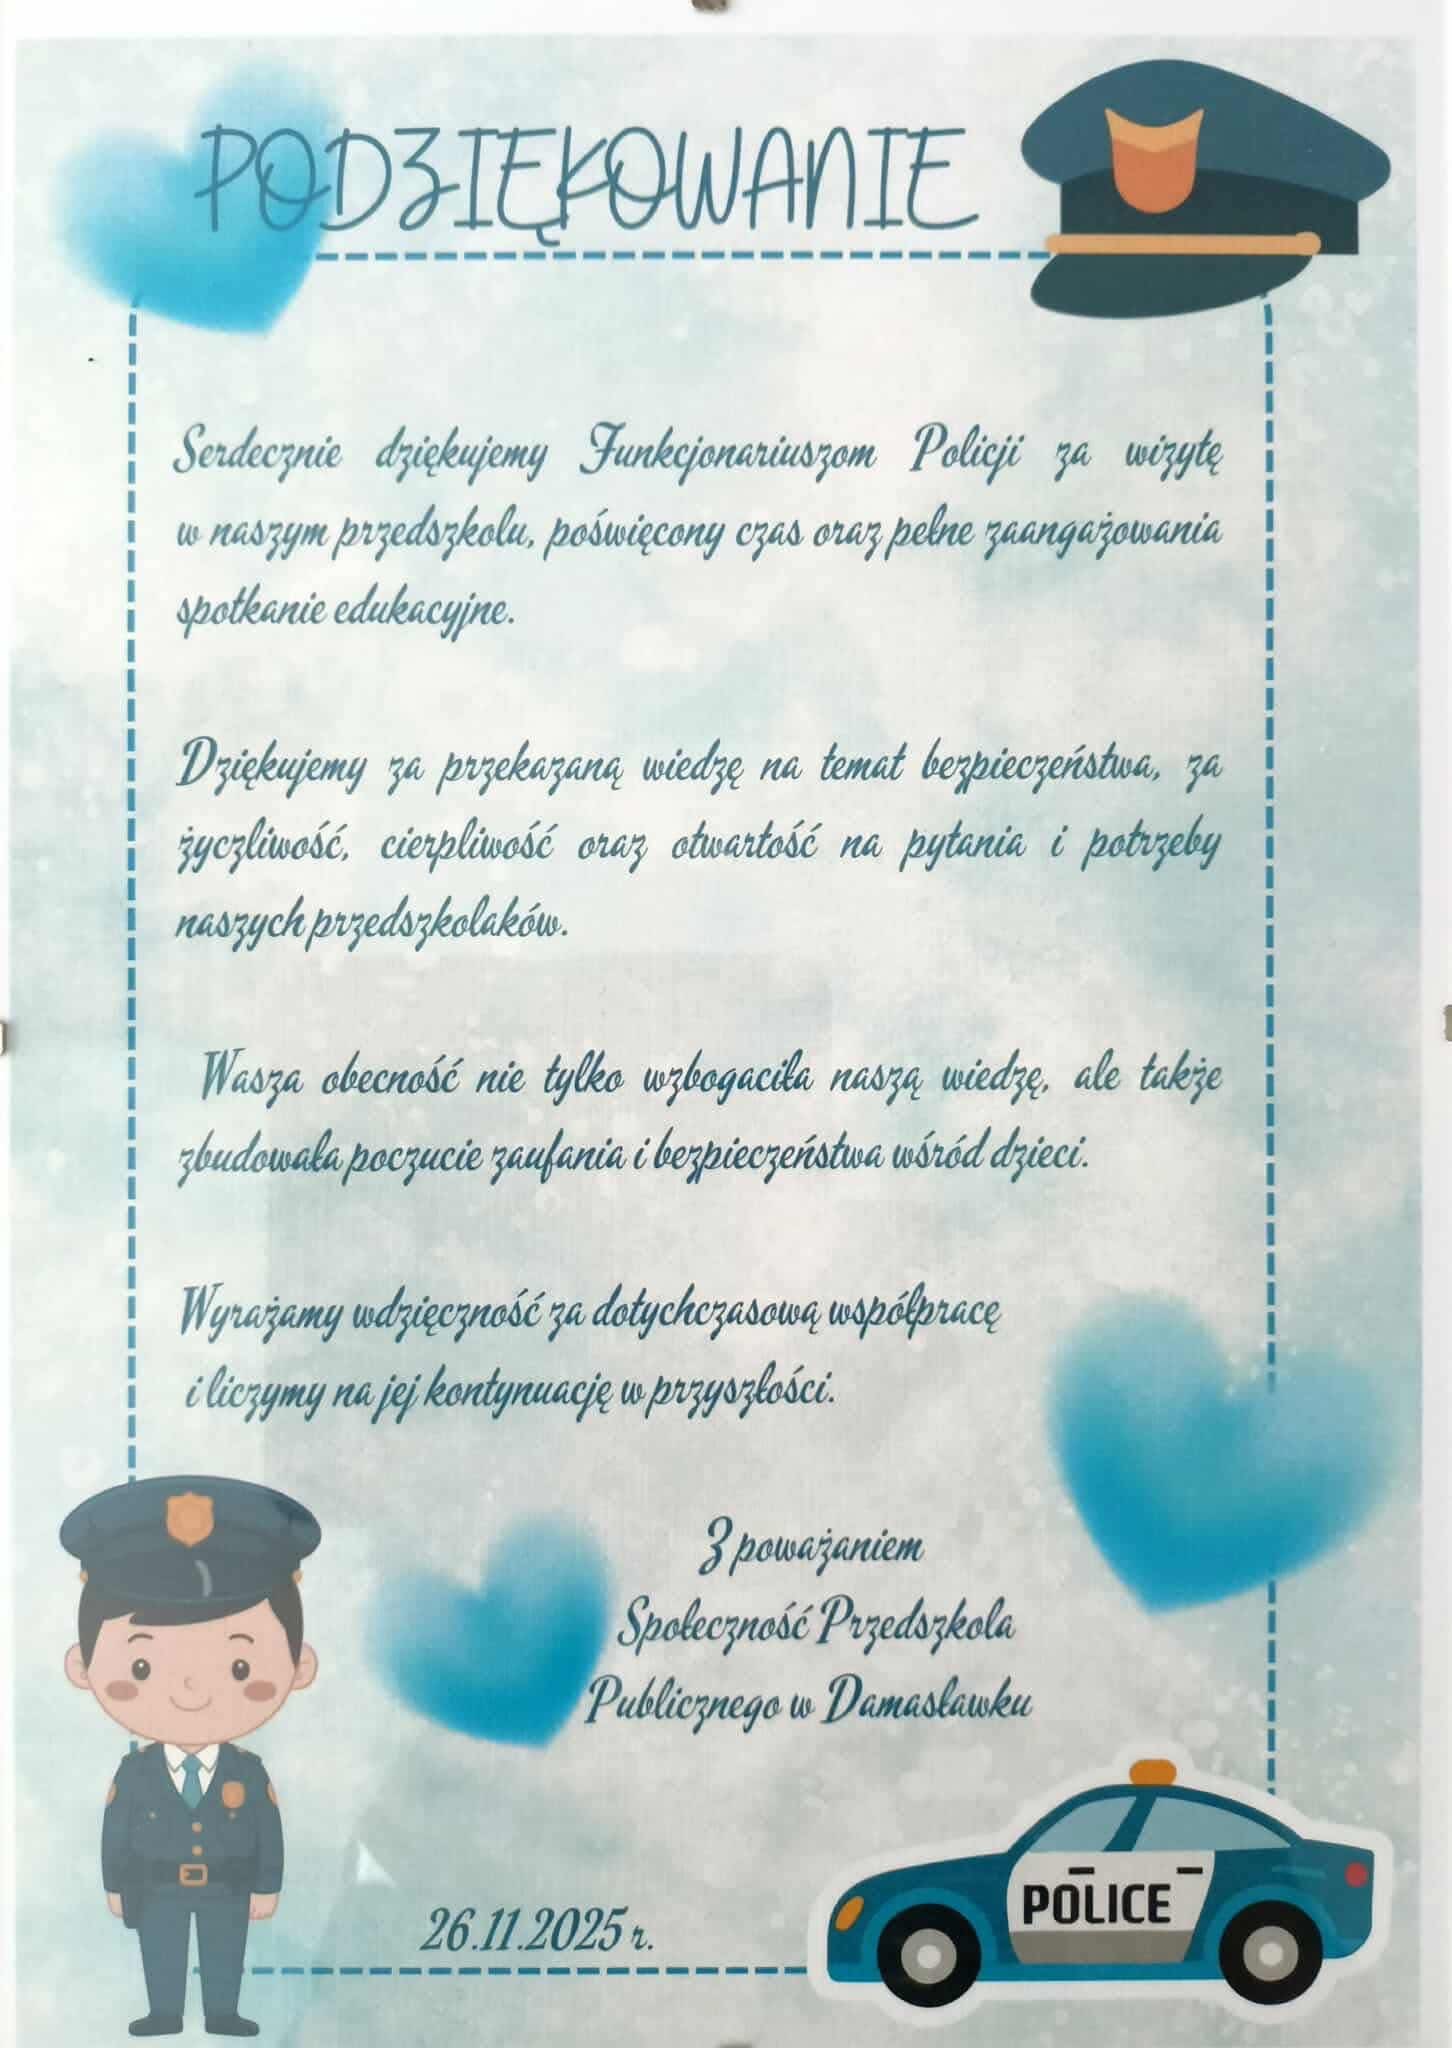 PODZIĘKOWANIE
Serdecznie dziękujemy Funkcjonariuszom Policji za wizytę
w naszym przedszkolu, poświęcony czas oraz pełne zaangażowania
spotkanie edukacyjne.
Dziękujemy za przekazaną wiedzę na temat bezpieczeństwa, za
życzliwość, cierpliwość oraz otwartość na pytania i potrzeby
naszych przedszkolaków.
Wasza obecność nie tylko wzbogaciła naszą wiedzę, ale także
zbudowała poczucie zaufania i bezpieczeństwa wśród dzieci.
Wyrażamy wdzięczność za dotychczasową współpracę
i liczymy na jej kontynuację w przyszłości.
Z poważaniem
Społeczność Przedszkola
Publicznego w Damasławku
26.11.2025 r.
POLICE